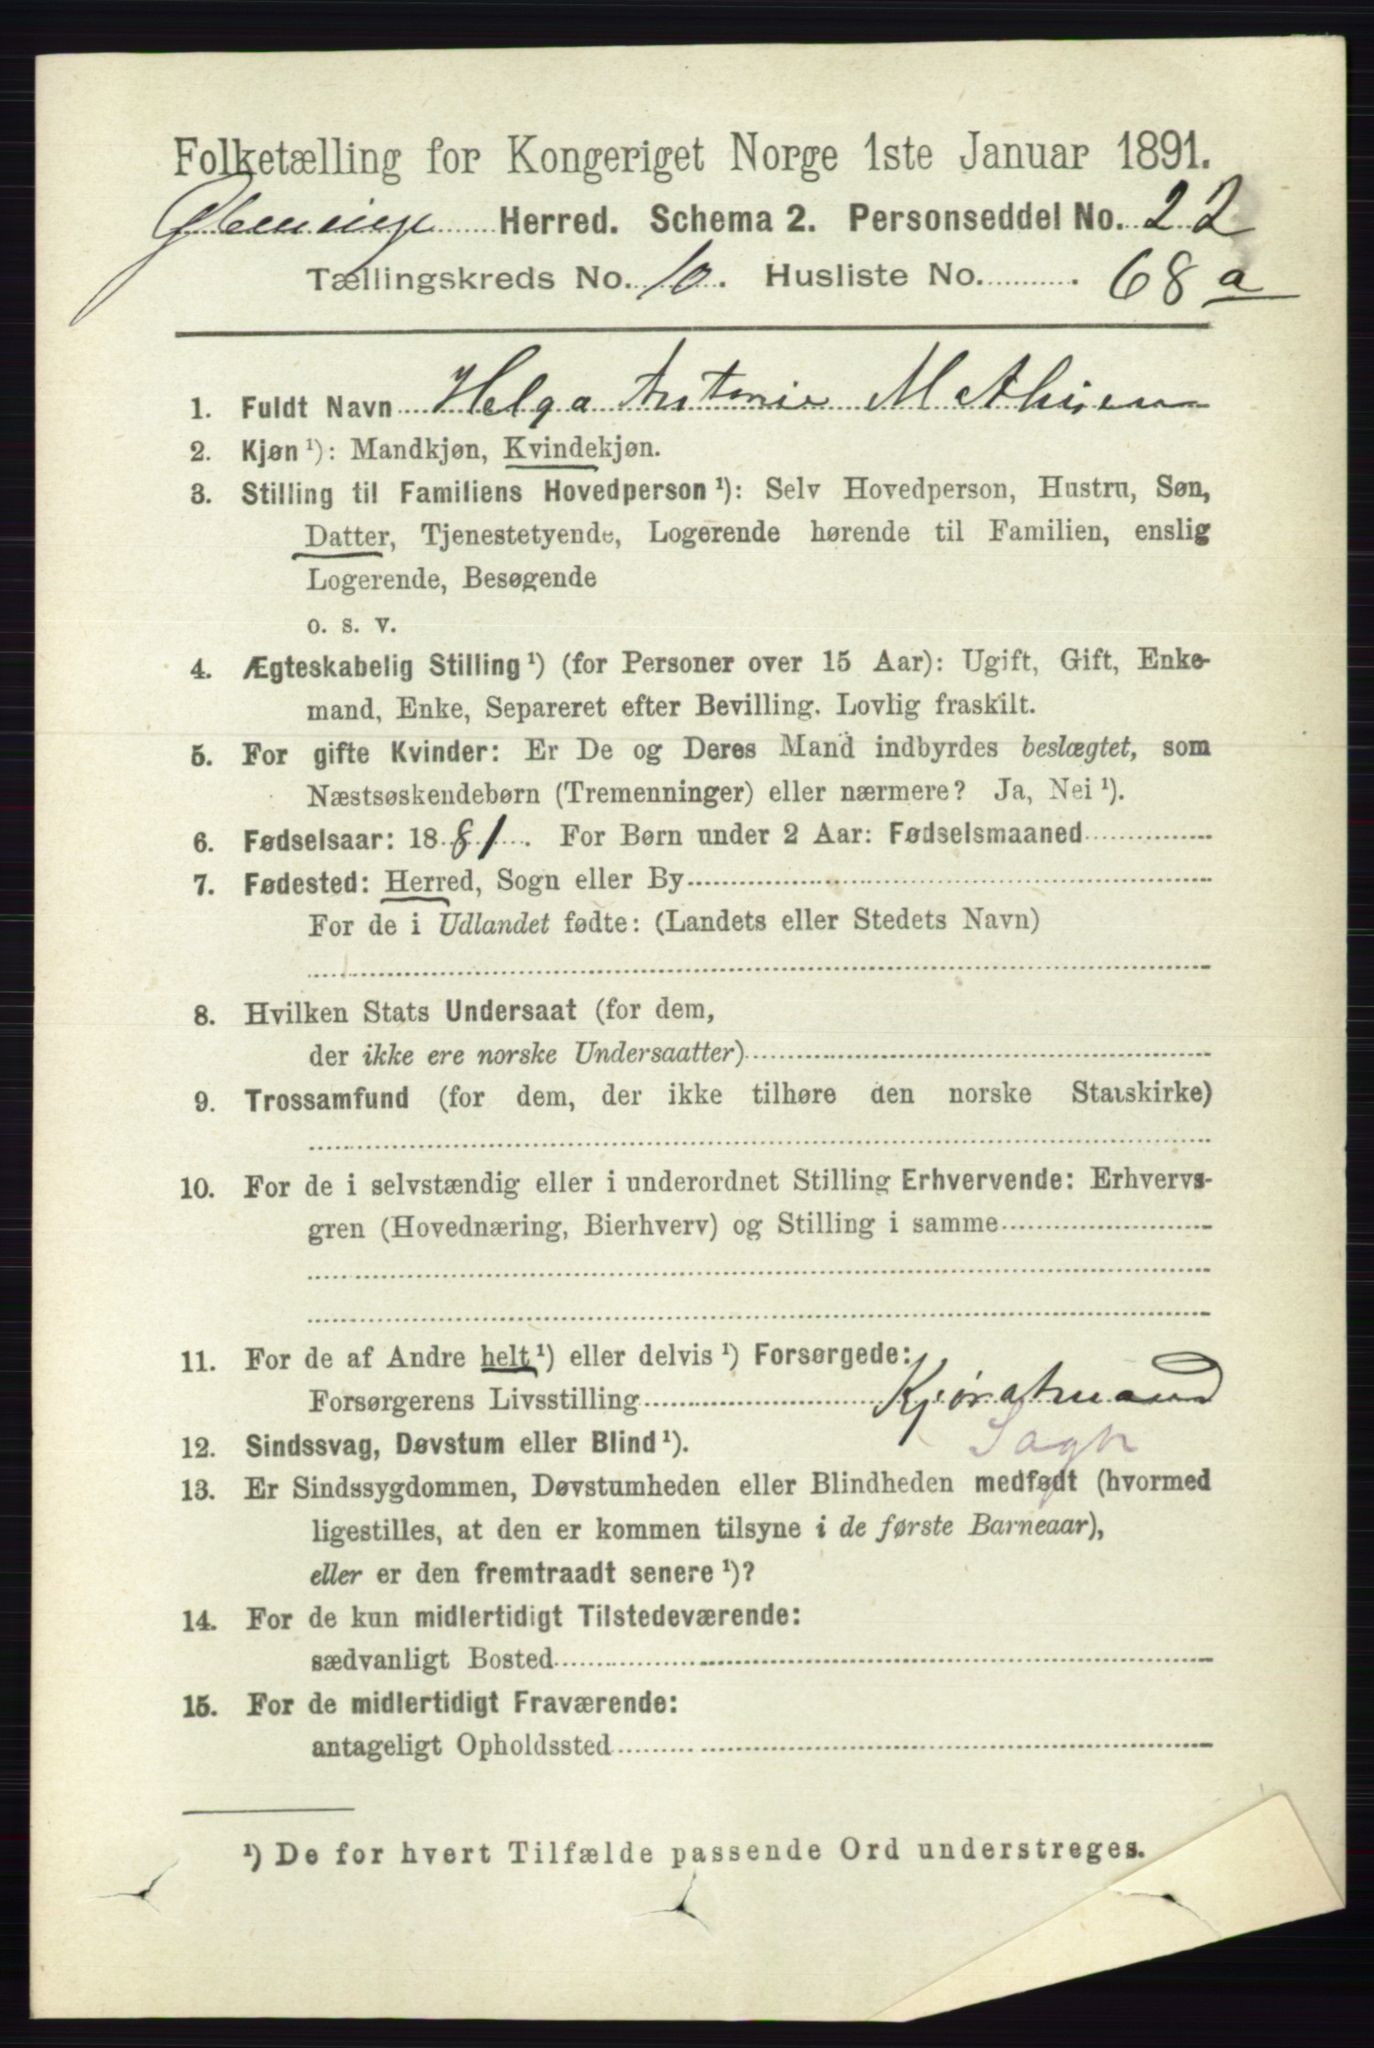 Folketælling for Kongeriget Norge 1ste Januar 1891.
Glemminge Herred. Schema 2. Personseddel No. 22
Tællingskreds No. 10. Husliste No. 68 a
1. Fuldt Navn Helga Antonie Mathisen
2. Kjøn ¹): Mandkjøn, Kvindekjøn.
3. Stilling til Familiens Hovedperson ¹): Selv Hovedperson, Hustru, Søn,
Datter, Tjenestetyende, Logerende hørende til Familien, enslig
Logerende, Besøgende
o. s. v.
4. Ægteskabelig Stilling ¹) (for Personer over 15 Aar): Ugift, Gift, Enke-
mand, Enke, Separeret efter Bevilling. Lovlig fraskilt.
5. For gifte Kvinder: Er De og Deres Mand indbyrdes beslægtet, som
Næstsøskendebørn (Tremenninger) eller nærmere? Ja, Nei ¹).
6. Fødselsaar: 1881. For Børn under 2 Aar: Fødselsmaaned
7. Fødested: Herred, Sogn eller By
For de i Udlandet fødte: (Landets eller Stedets Navn)
8. Hvilken Stats Undersaat (for dem,
der ikke ere norske Undersaatter)
9. Trossamfund (for dem, der ikke tilhøre den norske Statskirke)
10. For de i selvstændig eller i underordnet Stilling Erhvervende: Erhvervs-
gren (Hovednæring, Bierhverv) og Stilling i samme
11. For de af Andre helt ¹) eller delvis ¹) Forsørgede:
Forsørgerens Livsstilling Kjøratmand
12. Sindssvag, Døvstum eller Blind ¹).
13. Er Sindssygdommen, Døvstumheden eller Blindheden medfødt (hvormed
ligestilles, at den er kommen tilsyne i de første Barneaar),
eller er den fremtraadt senere ¹)?
14. For de kun midlertidigt Tilstedeværende:
sædvanligt Bosted
15. For de midlertidigt Fraværende:
antageligt Opholdssted
¹) De for hvert Tilfælde passende Ord understreges.